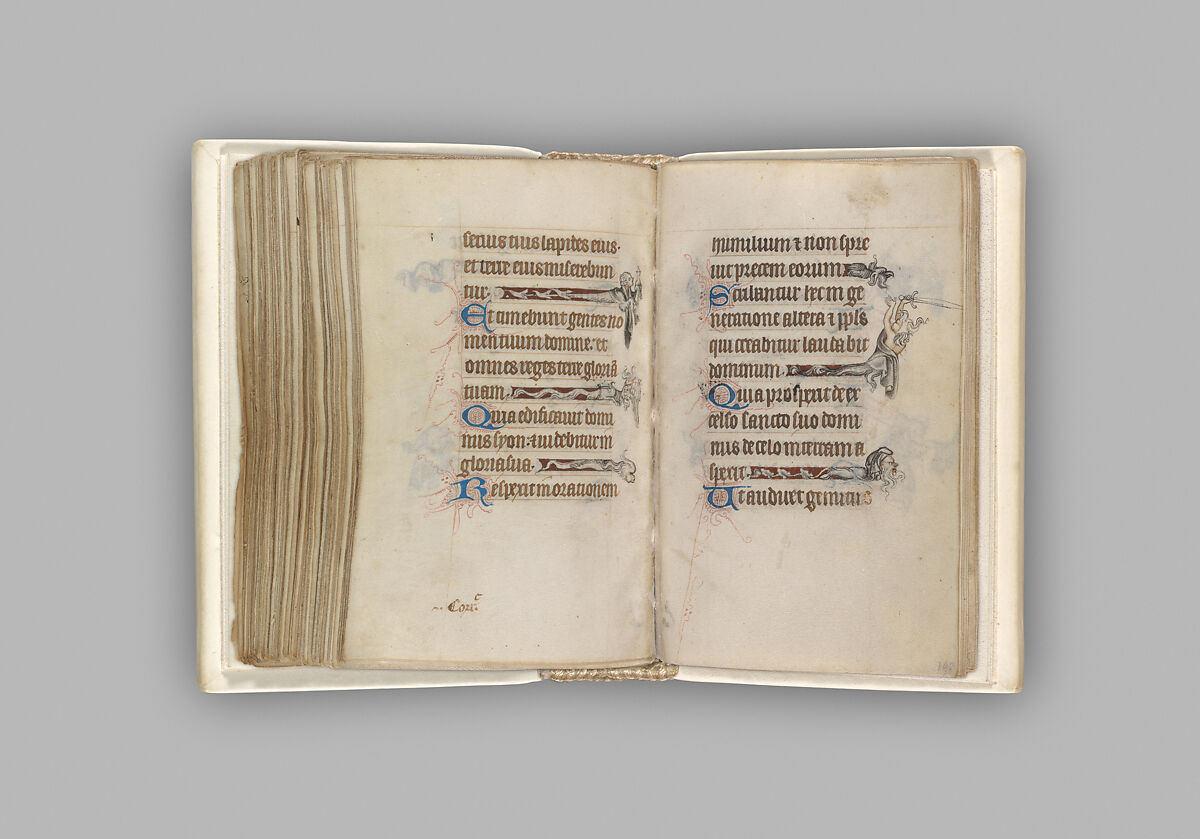 seruis tuis lapides eius.
et terre eius miserebun
tur.
Et timebunt gentes no
men tuum domine. et
omnes reges terre gloriā
tuam.
Quia edificauit domi
nus syon: & uidebitur in
gloria sua.
Respexit in orationem
Corrc
humilium ⁊ non spre
uit precem eorum
Scribantur hec in ge
neratione altera ⁊ ppl's
qui creabitur laudabit
dominum.
Quia prospexit de ex
celso sancto suo domi
nus de celo in terram a
spexit.
Ut audiret gemitus